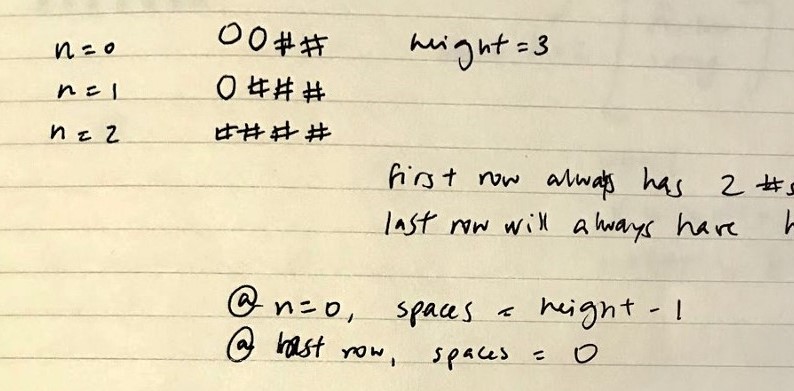 n=0 OO## height=3
n=1 O###
n=2 ####
first row always has 2 #s
last row will always have h
@ n=0, spaces = height - 1
@ last row, spaces = 0